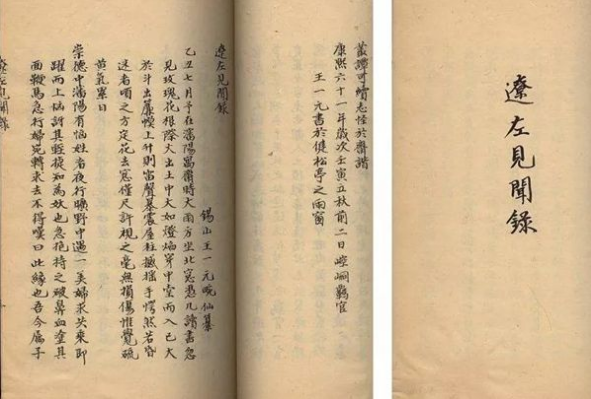 遼左見聞錄
叢譚可續志怪於齊諧
康熙六十一年歲次壬寅立秋前二日崆峒
王一元書於健松亭之雨窗
遼左見聞錄
錫山王一元畹仙纂
乙丑七月予在瀋陽寓齋時大雨方坐北窓憑几讀書忽
見玫瑰花根際火出上中大如燈焰穿中堂而入已大
於斗出簾幙上升則雷聲暴震屋柱撼搖予愕然若昏
迷者頃之方定花去窓僅尺許視之毫無損傷惟覺硫
黄氣累日
崇德中瀋陽有姓者夜行曠野中遇一美婦求共乘即
躍而上訝其輕捷知為妖也急抱持之鼻血塗其
面鞭馬急行婦宛轉求去不得嘆曰此緣也吾今屬子
遼左見聞錄